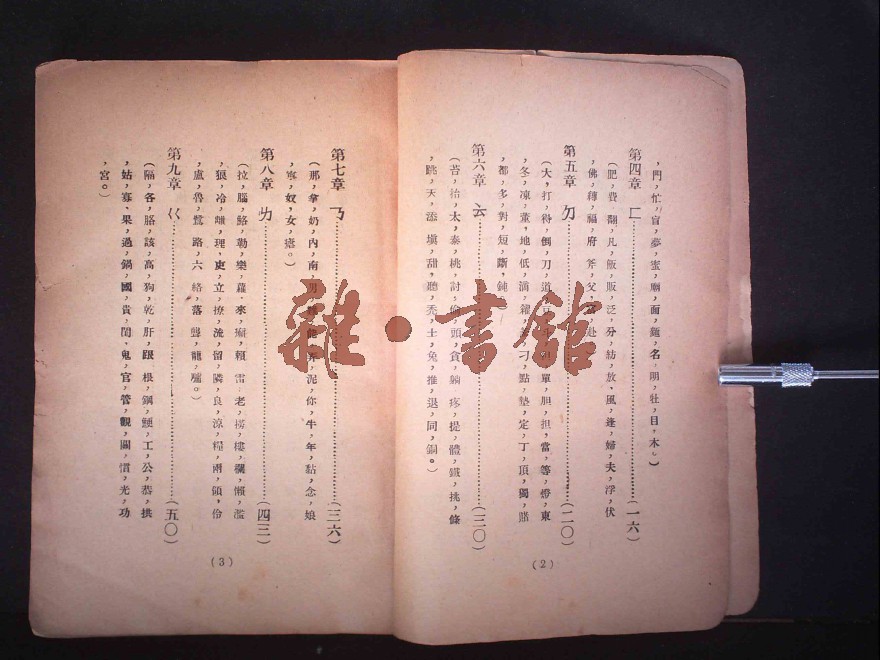 ，門，忙，盲，夢，蜜，廟，面，麵，名，明，牡，目，木。）
第四章 ㄈ……（一六）
（肥，費，翻，凡，飯，販，泛，分，紡，放，風，逢，婦，夫，浮，伏
，佛，縛，福，府，斧，父，富，赴
第五章 ㄉ……（二〇）
（大，打，得，倒，刀，道，單，胆，担，當，等，燈，東
，冬，凍，董，地，低，滴，刁，點，墊，定，丁，頂，獨，賭
，都，多，對，短，斷，鈍。）
第六章 ㄊ……（三〇）
（苔，抬，太，泰，桃，討，偷，頭，貪，疼，提，體，鐵，挑，條
，跳，天，添，塡，甜，聽，禿，土，兔，推，退，同，銅。）
（2）
第七章 ㄋ……（三六）
（那，拿，奶，內，南，男，能，泥，你，牛，年，黏，念，娘
，寧，奴，女，瘧。）
第八章 ㄌ……（四三）
（拉，腦，酪，勒，樂，蘿，來，癩，賴，雷，老，撈，樓，欄，懶，濫
，狼，冷，離，理，吏，立，撩，流，留，隣，良，涼，糧，兩，領，伶
，盧，魯，鷺，路，六，綹，落，聾，龍，櫳。）
第九章 ㄍ……（五〇）
（隔，各，胳，該，高，狗，乾，肝，跟，根，鋼，哽，工，公，恭，拱
，姑，寡，果，過，鍋，國，貴，閨，鬼，官，管，觀，關，慣，光，功
，宮。）
（3）
雜・書館